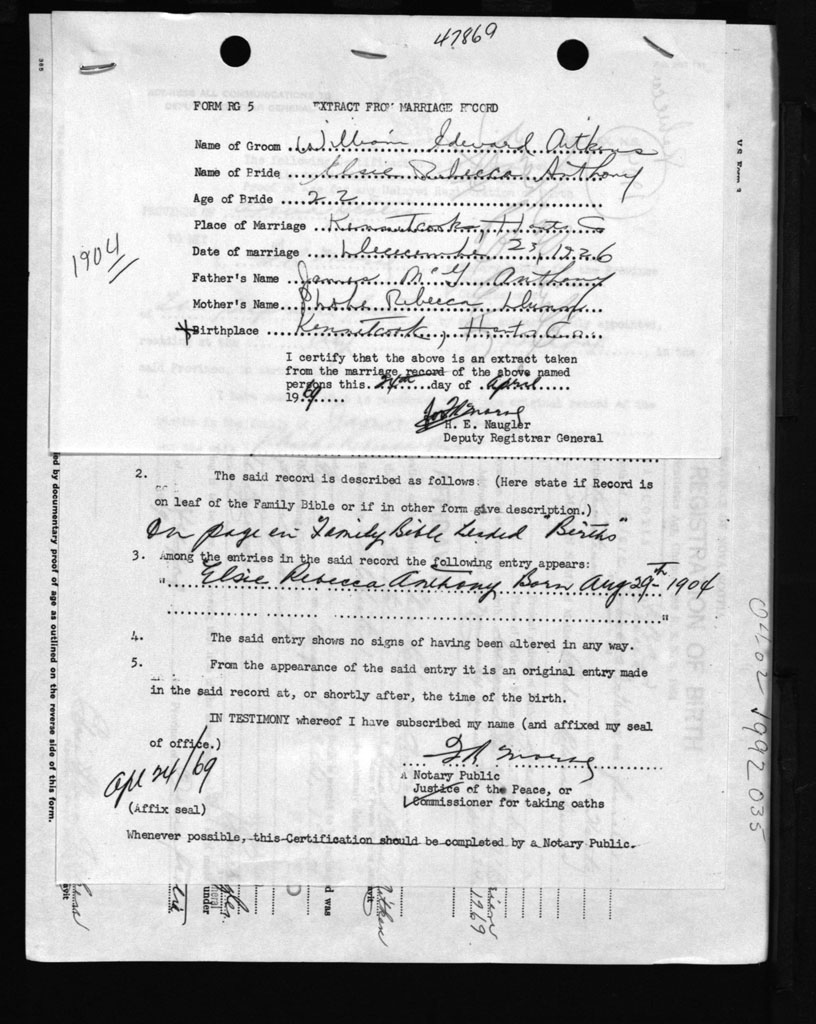 47869
FORM RG 5 EXTRACT FROM MARRIAGE RECORD
Name of Groom William Edward Aitkens
Name of Bride Elsie Rebecca Anthony
Age of Bride 22
Place of Marriage Kennetcook, Hants Co
Date of marriage December 23, 1926
1904
Father's Name James Mc Y Anthony
Mother's Name Rebecca
Birthplace Kennetcook, Hants Co.
I certify that the above is an extract taken
from the marriage record of the above named
persons this 24th day of April
1969
H. E. Naugler
Deputy Registrar General
2. The said record is described as follows: (Here state if Record is
on leaf of the Family Bible or if in other form give description.)
On page in Family Bible headed "Births"
3. Among the entries in the said record the following entry appears:
" Elsie Rebecca Anthony Born Aug 29th 1904
"
4. The said entry shows no signs of having been altered in any way.
5. From the appearance of the said entry it is an original entry made
in the said record at, or shortly after, the time of the birth.
IN TESTIMONY whereof I have subscribed my name (and affixed my seal
of office.)
Apl 24/69
A Notary Public
Justice of the Peace, or
Commissioner for taking oaths
(Affix seal)
Whenever possible, this Certification should be completed by a Notary Public.
ed by documentary proof of age as outlined on the reverse side of this form.
REGISTRATION OF BIRTH
0402-1992035
under
d was
1969